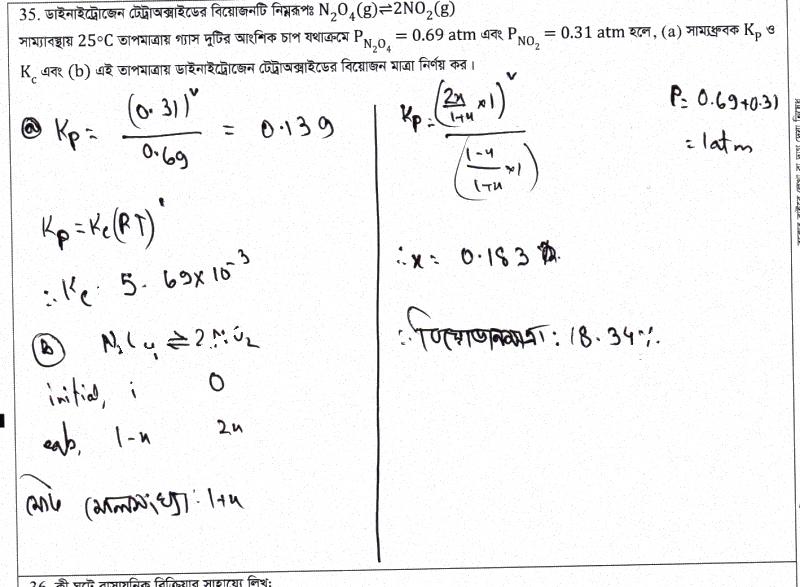 35. ডাইনাইট্রোজেন টেট্রাঅক্সাইডের বিয়োজনটি নিম্নরূপঃ N₂O₄(g)⇌2NO₂(g)
সাম্যাবস্থায় 25°C তাপমাত্রায় গ্যাস দুটির আংশিক চাপ যথাক্রমে P_N₂O₄ = 0.69 atm এবং P_NO₂ = 0.31 atm হলে, (a) সাম্যধ্রুবক K_p ও
K_c এবং (b) এই তাপমাত্রায় ডাইনাইট্রোজেন টেট্রাঅক্সাইডের বিয়োজন মাত্রা নির্ণয় কর।
(a) Kp = (0.31)² / 0.69 = 0.139
Kp = Kc(RT)'
∴ Kc = 5.69×10⁻³
(b) N₂O₄ ⇌ 2NO₂
initial, 1 0
eqb, 1-x 2x
মোট মোলসংখ্যা: 1+x
Kp = (2x/1+x ×1)² / (1-x/1+x ×1)
P = 0.69+0.31
= 1 atm
∴ x = 0.183
∴ বিয়োজনমাত্রা: 18.34%